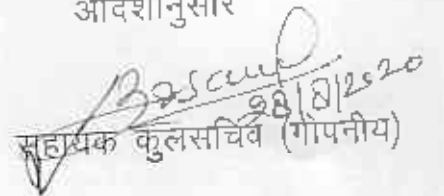 आदेशानुसार
28/8/2020
सहायक कुलसचिव (गोपनीय)